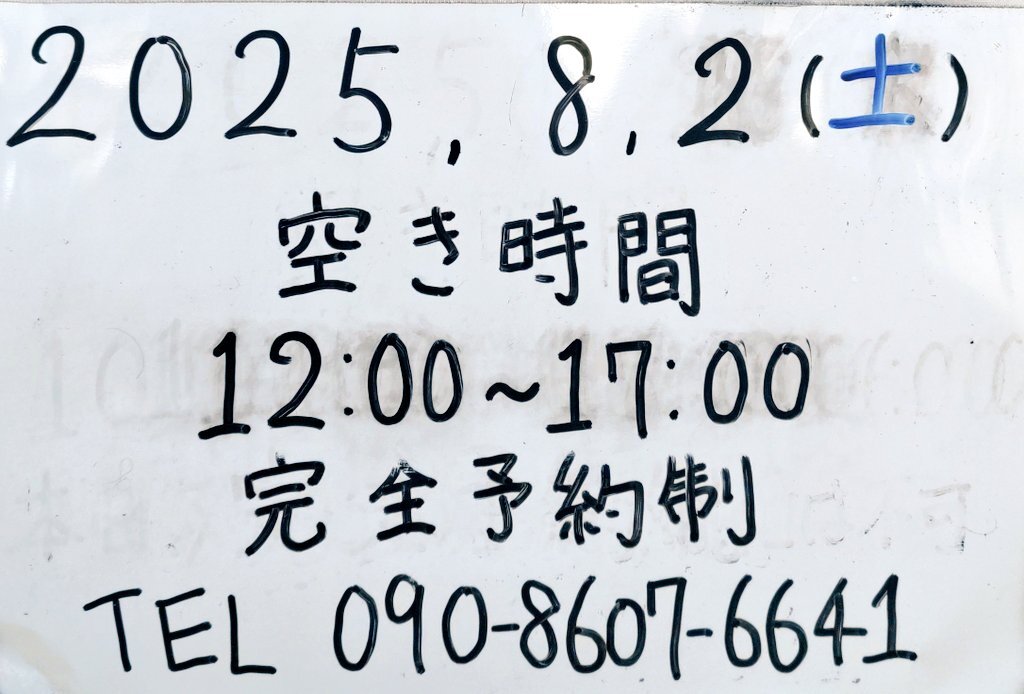 2025.8.2(土)
空き時間
12:00~17:00
完全予約制
TEL 090-8607-6641